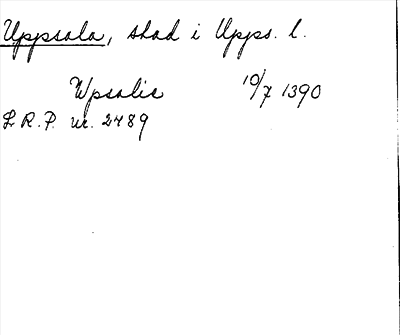 Uppsala, stad i Upps. l.
Wpsalie 10/7 1390
S.R.P. nr. 2489